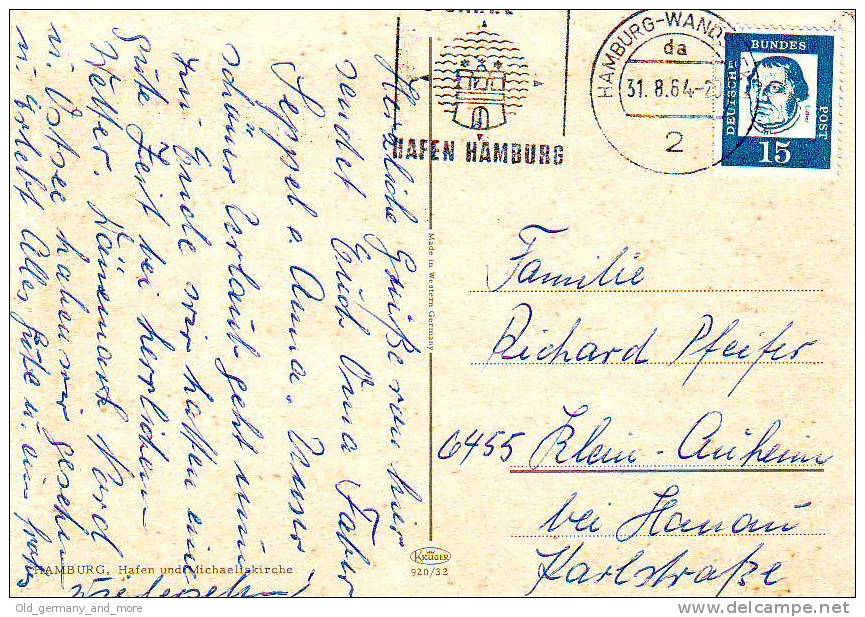 HAFEN HAMBURG
HAMBURG-WAND
da
31.8.64-20
2
DEUTSCHE
BUNDES
POST
15
Herzliche Grüße von hier
sendet Euch Oma Fahr
Seppel u. Anna. Unser
schöner Urlaub geht nun
zum Ende wir hatten eine
gute Zeit bei herrlichem
Wetter. Dänemark Nord
u. Ostsee haben wir gesehen
u. erlebt Alles Gute u. ein frohes
Wiedersehn!
Made in Western Germany
Familie
Richard Pfeifer
6455 Klein-Auheim
bei Hanau
Karlstraße
HAMBURG, Hafen und Michaeliskirche
KRÜGER
920/32
Old_germany_and_more
delcampe.net